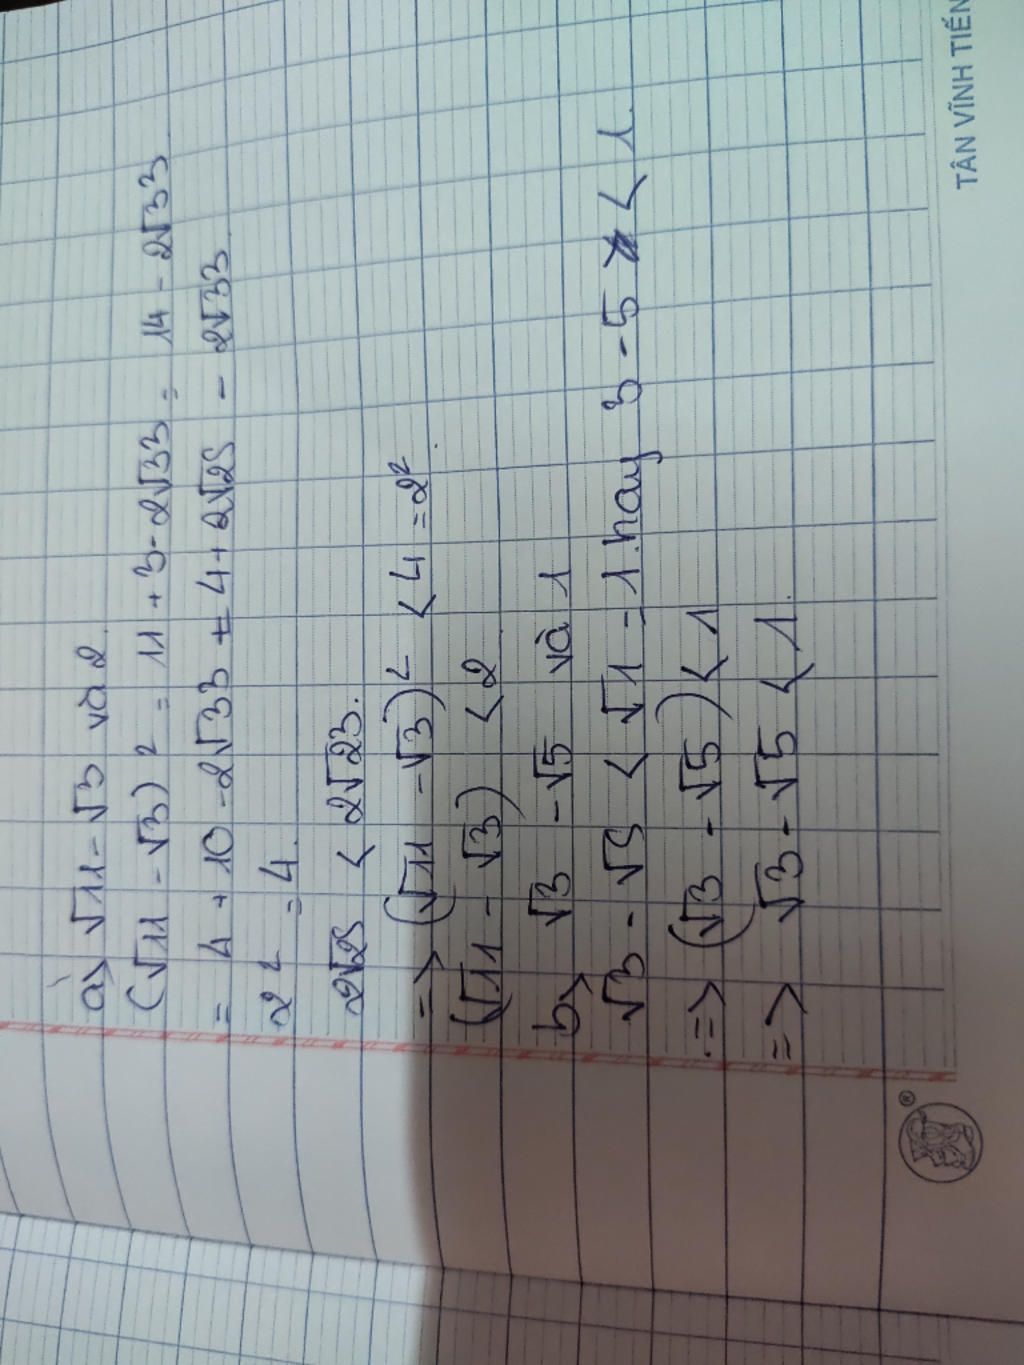 a> √11 - √3 và 2.
(√11 - √3)² = 11 + 3 - 2√33 = 14 - 2√33
= 4 + 10 - 2√33 = 4 + 2√25 - 2√33.
2² = 4.
2√25 < 2√23.
=> (√11 - √3)² < 4 = 2².
(√11 - √3) < 2
b> √3 - √5 và 1
√3 - √5 < √1 = 1. hay 3 - 5 < 1.
=> (√3 - √5) < 1
=> √3 - √5 < 1.
TÂN VĨNH TIẾN
®